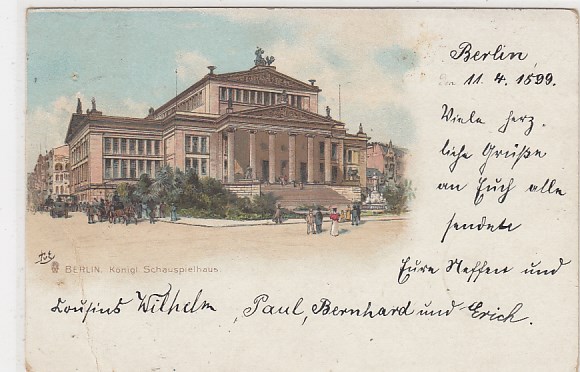 Berlin,
den 11. 4. 1899.
Viele herz-
liche Grüße
an Euch alle
sendete
Eure Neffen und
Cousins Wilhelm, Paul, Bernhard und Erich.
Tot
BERLIN. Königl Schauspielhaus.